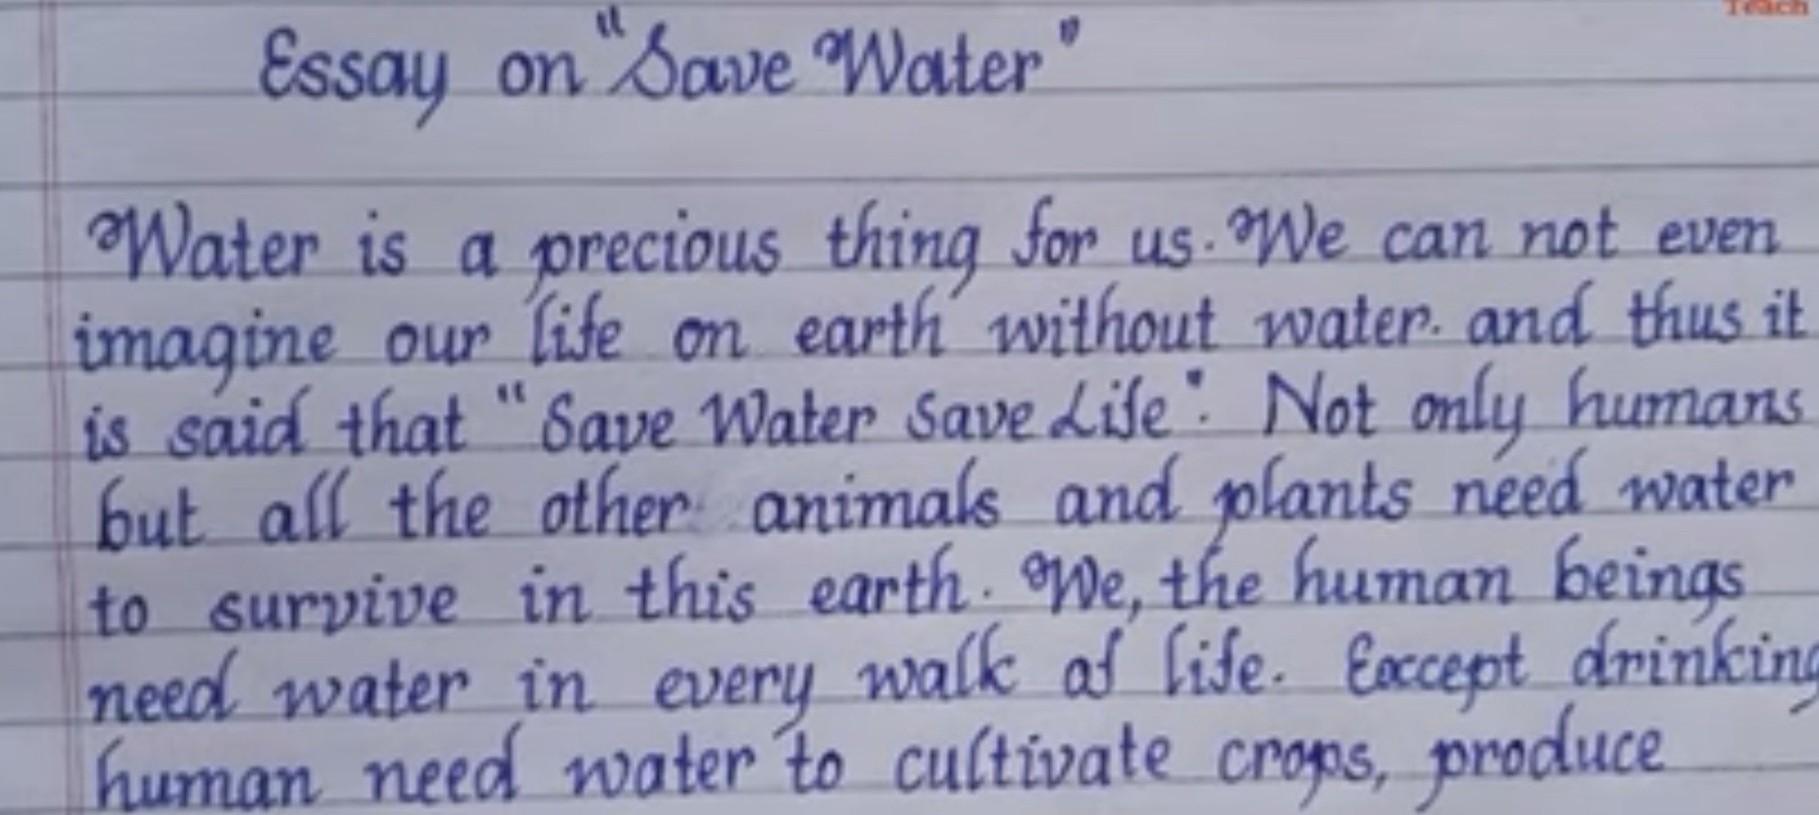 Teach
Essay on "Save Water"
Water is a precious thing for us. We can not even
imagine our life on earth without water. and thus it
is said that "Save Water Save Life". Not only humans
but all the other animals and plants need water
to survive in this earth. We, the human beings
need water in every walk of life. Except drinking
human need water to cultivate crops, produce